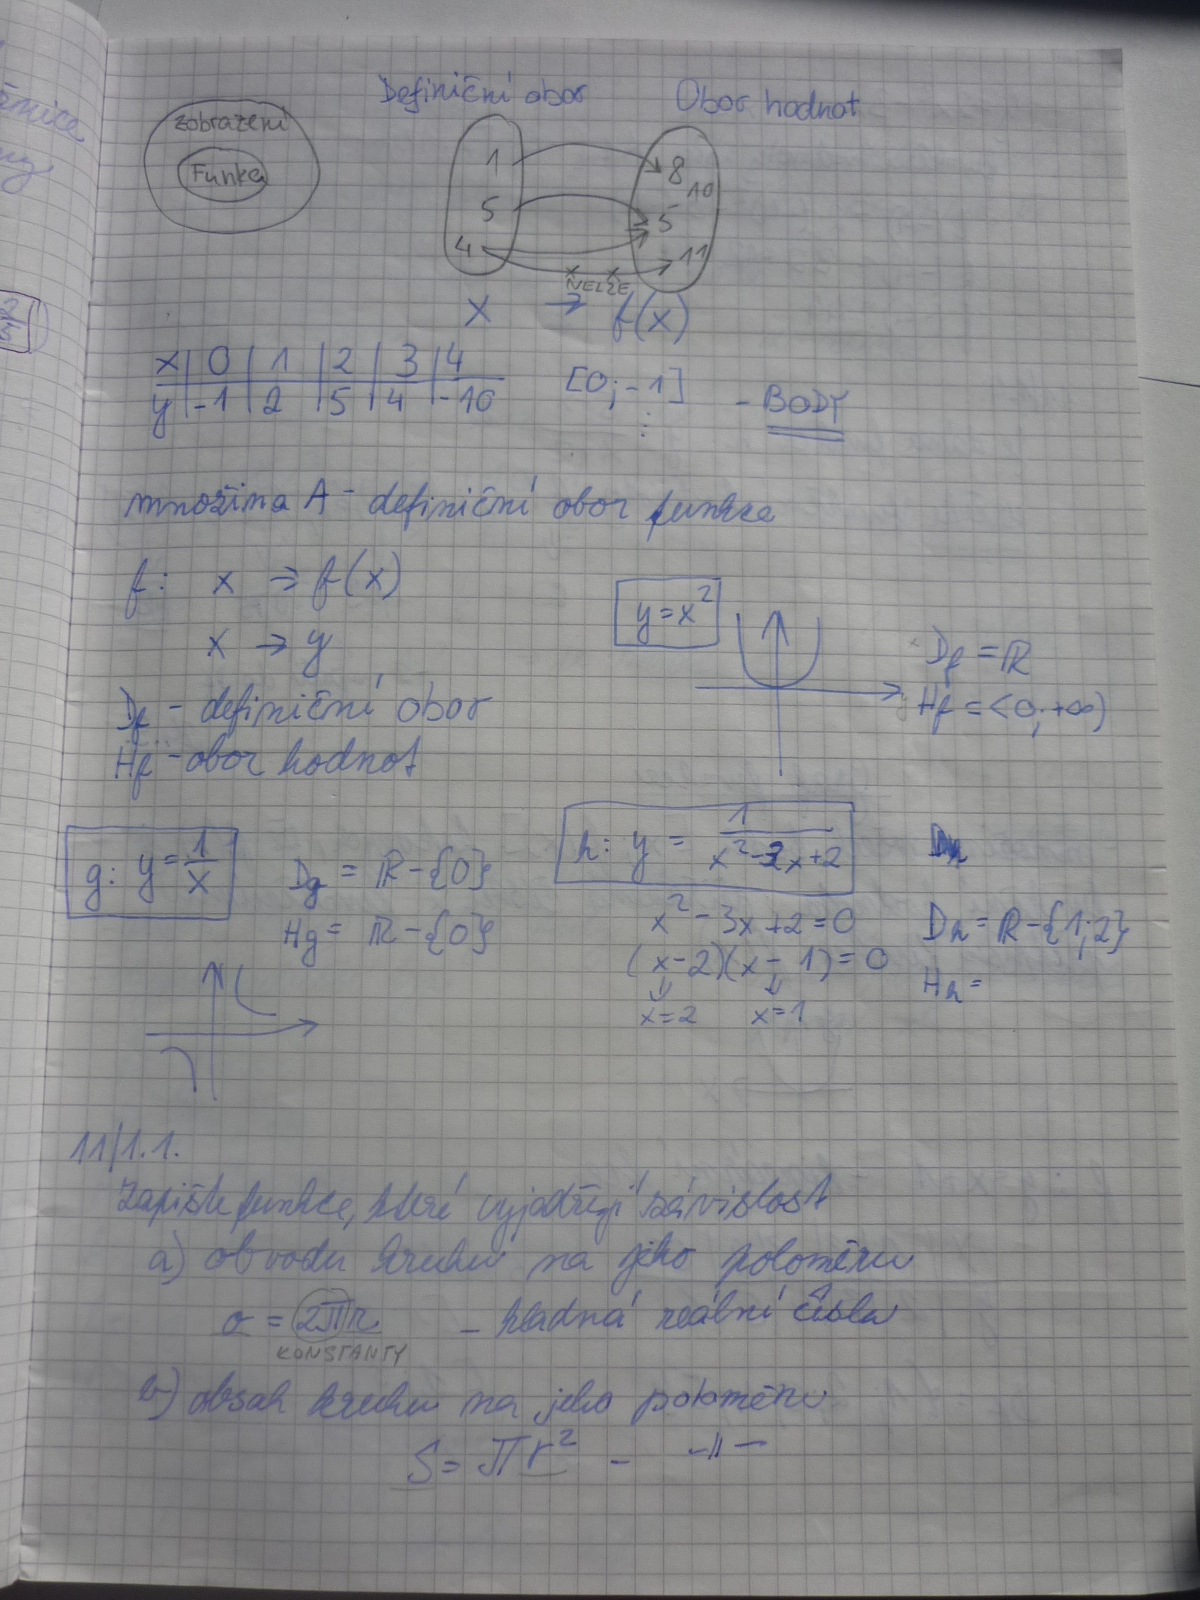 Definiční obor Obor hodnot
zobrazení
Funkce
1 8
10
5 5
4 11
NELZE
x → f(x)
x | 0 | 1 | 2 | 3 | 4
y | -1 | 2 | 5 | 4 | -10
[0; -1] - BODY
⋮
množina A - definiční obor funkce
f: x → f(x)
x → y
y = x²
Df = ℝ
Hf = <0; +∞)
Df - definiční obor
Hf - obor hodnot
g: y = 1/x
Dg = ℝ - {0}
Hg = ℝ - {0}
h: y = 1/(x² - 3x + 2)
x² - 3x + 2 = 0
(x - 2)(x - 1) = 0
x = 2 x = 1
Dh = ℝ - {1; 2}
Hh =
11/1.1.
Zapište funkce, které vyjadřují závislost
a) obvodu kruhu na jeho poloměru
o = 2πr - kladná reální čísla
KONSTANTY
b) obsah kruhu na jeho poloměru
S = πr² - -||-